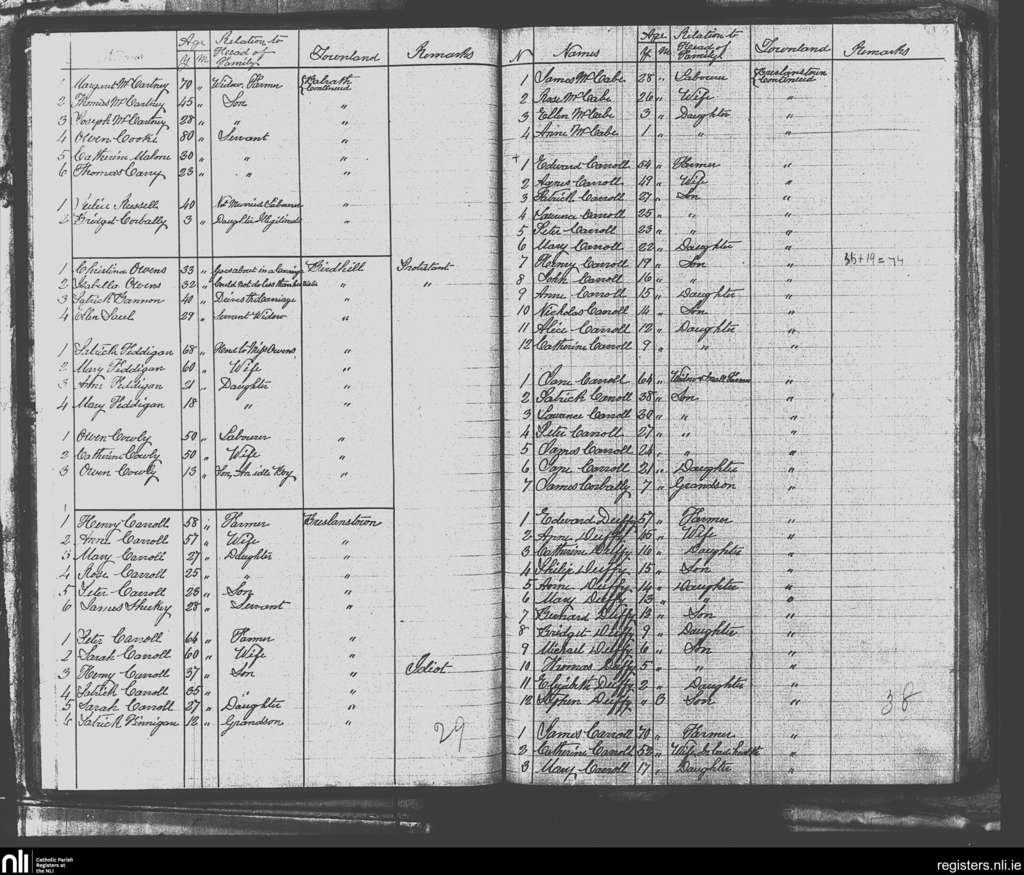 Names Age Y M Relation to Head of Family Townland Remarks
1 Margaret McCartney 70 " Widow, Farmer Balrath Continued
2 Thomas McCartney 45 " Son "
3 Joseph McCartney 28 " " "
4 Owen Cooke 80 " Servant "
5 Catherine Malone 30 " " "
6 Thomas Carry 23 " " "
1 Russell 40 " Not Married "
2 Bridget Corbally 3 " Daughter Illigitimate "
1 Christina Owens 33 " Goes about in a Carriage Birdhill Protestant
2 Isabella Owens 32 " Could not do less than her Sister " "
3 Patrick Gannon 40 " Drives the Carriage "
4 Ellen Saul 29 " Servant Widow "
1 Patrick Feddigan 68 " Herd to Miss Owens "
2 Mary Feddigan 60 " Wife "
3 Anne Feddigan 21 " Daughter "
4 Mary Feddigan 18 " " "
1 Owen Cowly 50 " Labourer "
2 Catherine Cowly 50 " Wife "
3 Owen Cowly 13 " Son, An idle Boy "
1 Henry Carroll 58 " Farmer Breslanstown
2 Anne Carroll 57 " Wife "
3 Mary Carroll 27 " Daughter "
4 Rose Carroll 25 " " "
5 Peter Carroll 23 " Son "
6 James Sheeky 28 " Servant "
1 Peter Carroll 64 " Farmer "
2 Sarah Carroll 60 " Wife "
3 Henry Carroll 37 " Son " Idiot
4 Patrick Carroll 35 " " "
5 Sarah Carroll 27 " Daughter "
6 Patrick Finnigan 12 " Grandson "
29
N Names Age Y M Relation to Head of Family Townland Remarks
1 James McCabe 28 " Labourer Breslanstown Continued
2 Rose McCabe 26 " Wife "
3 Ellen McCabe 3 " Daughter "
4 Anne McCabe 1 " " "
+
1 Edward Carroll 54 " Farmer "
2 Agnes Carroll 49 " Wife "
3 Patrick Carroll 27 " Son "
4 Laurence Carroll 25 " " "
5 Peter Carroll 23 " " "
6 Mary Carroll 22 " Daughter "
7 Henry Carroll 19 " Son " 55+19=74
8 John Carroll 16 " " "
9 Anne Carroll 15 " Daughter "
10 Nicholas Carroll 14 " Son "
11 Alice Carroll 12 " Daughter "
12 Catherine Carroll 9 " " "
1 Jane Carroll 64 " Widow & Small Farmer "
2 Patrick Carroll 38 " Son "
3 Lawrence Carroll 30 " " "
4 Peter Carroll 27 " " "
5 James Carroll 24 " " "
6 Jane Carroll 21 " Daughter "
7 James Corbally 7 " Grandson "
1 Edward Duffy 57 " Farmer "
2 Anne Duffy 45 " Wife "
3 Catherine Duffy 16 " Daughter "
4 Philip Duffy 15 " Son "
5 Anne Duffy 14 " Daughter "
6 Mary Duffy 13 " " "
7 Bernard Duffy 13 " Son "
8 Bridget Duffy 9 " Daughter "
9 Michael Duffy 6 " Son "
10 Thomas Duffy 5 " " "
11 Elizabeth Duffy 2 " Daughter "
12 Stephen Duffy " 3 Son "
38
1 James Carroll 70 " Farmer "
2 Catherine Carroll 52 " Wife "
3 Mary Carroll 17 " Daughter "
nli Catholic Parish
Registers at
the NLI
registers.nli.ie